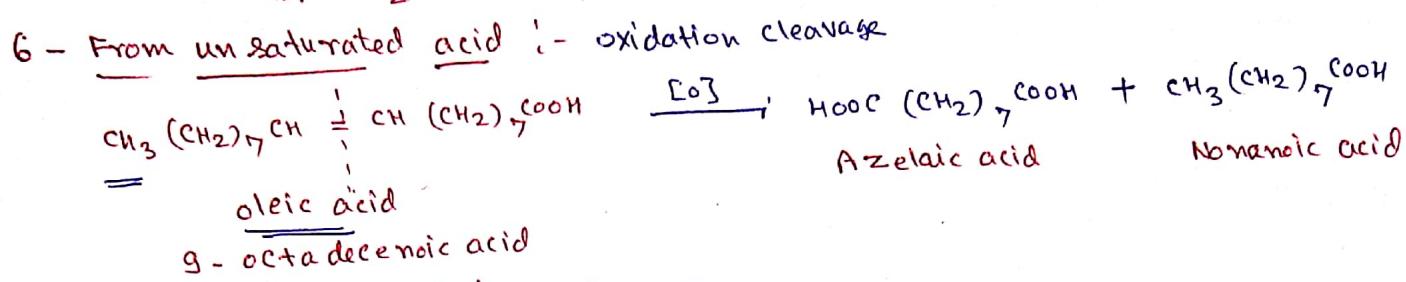 6 - From unsaturated acid :- oxidation cleavage
CH3 (CH2)7 CH = CH (CH2)7 COOH [O] → HOOC (CH2)7 COOH + CH3 (CH2)7 COOH
Azelaic acid Nonanoic acid
oleic acid
9 - octadecenoic acid